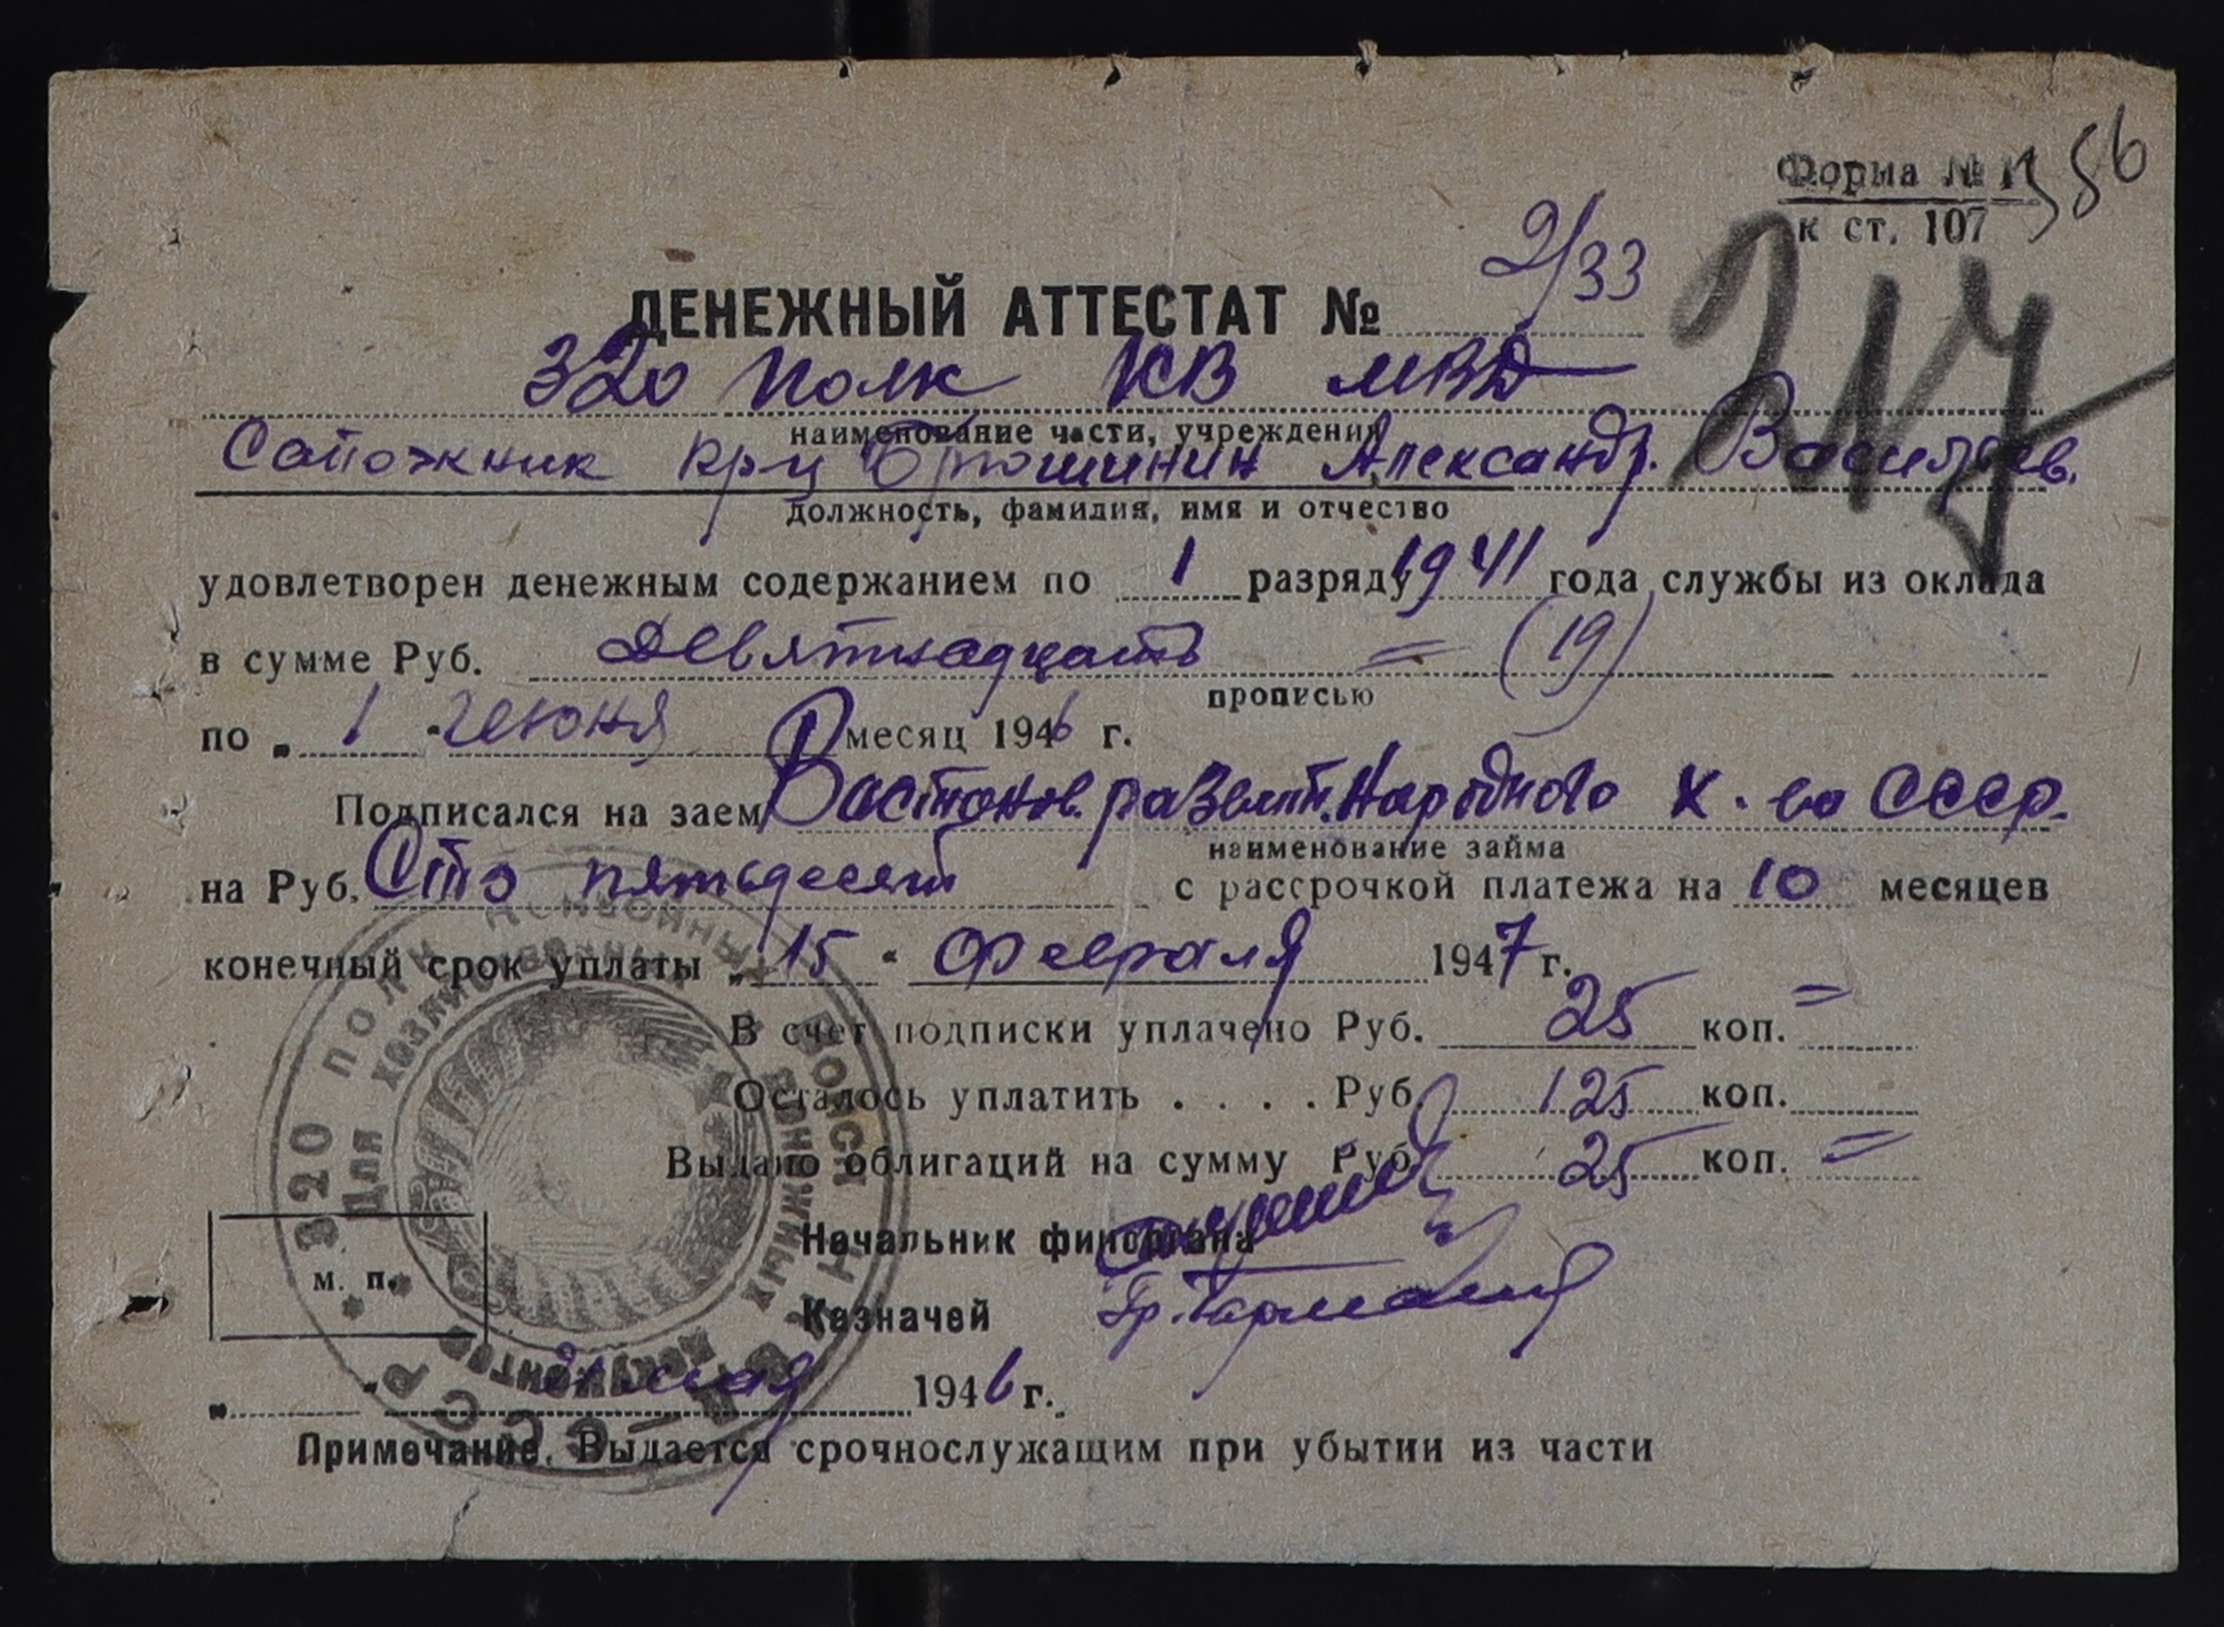 Форма № 356
к ст. 107
217
ДЕНЕЖНЫЙ АТТЕСТАТ № 2/33
320 полк КВ МВД
наименование части, учреждения
Сапожник кр-ц Брюшинин Александр. Васильев.
должность, фамилия, имя и отчество
удовлетворен денежным содержанием по 1 разряду 1941 года службы из оклада
в сумме Руб. Девятнадцать = (19)
прописью
по „ 1 “ июня месяц 1946 г.
Подписался на заем Востонов. развит. Народного Х-ва СССР.
наименование займа
на Руб. Сто пятьдесят с рассрочкой платежа на 10 месяцев
конечный срок уплаты „ 15 “ Февраля 1947 г.
В счет подписки уплачено Руб. 25 коп. =
Осталось уплатить . . . . Руб. 125 коп.
Выдано облигаций на сумму Руб. 25 коп. =
Начальник финоргана
Казначей
м. п.
мая 1946 г.
Примечание. Выдается срочнослужащим при убытии из части
320 ПОЛК КОНВОЙНЫХ ВОЙСК НКВД–СССР
Для хозяйственных и денежных документов